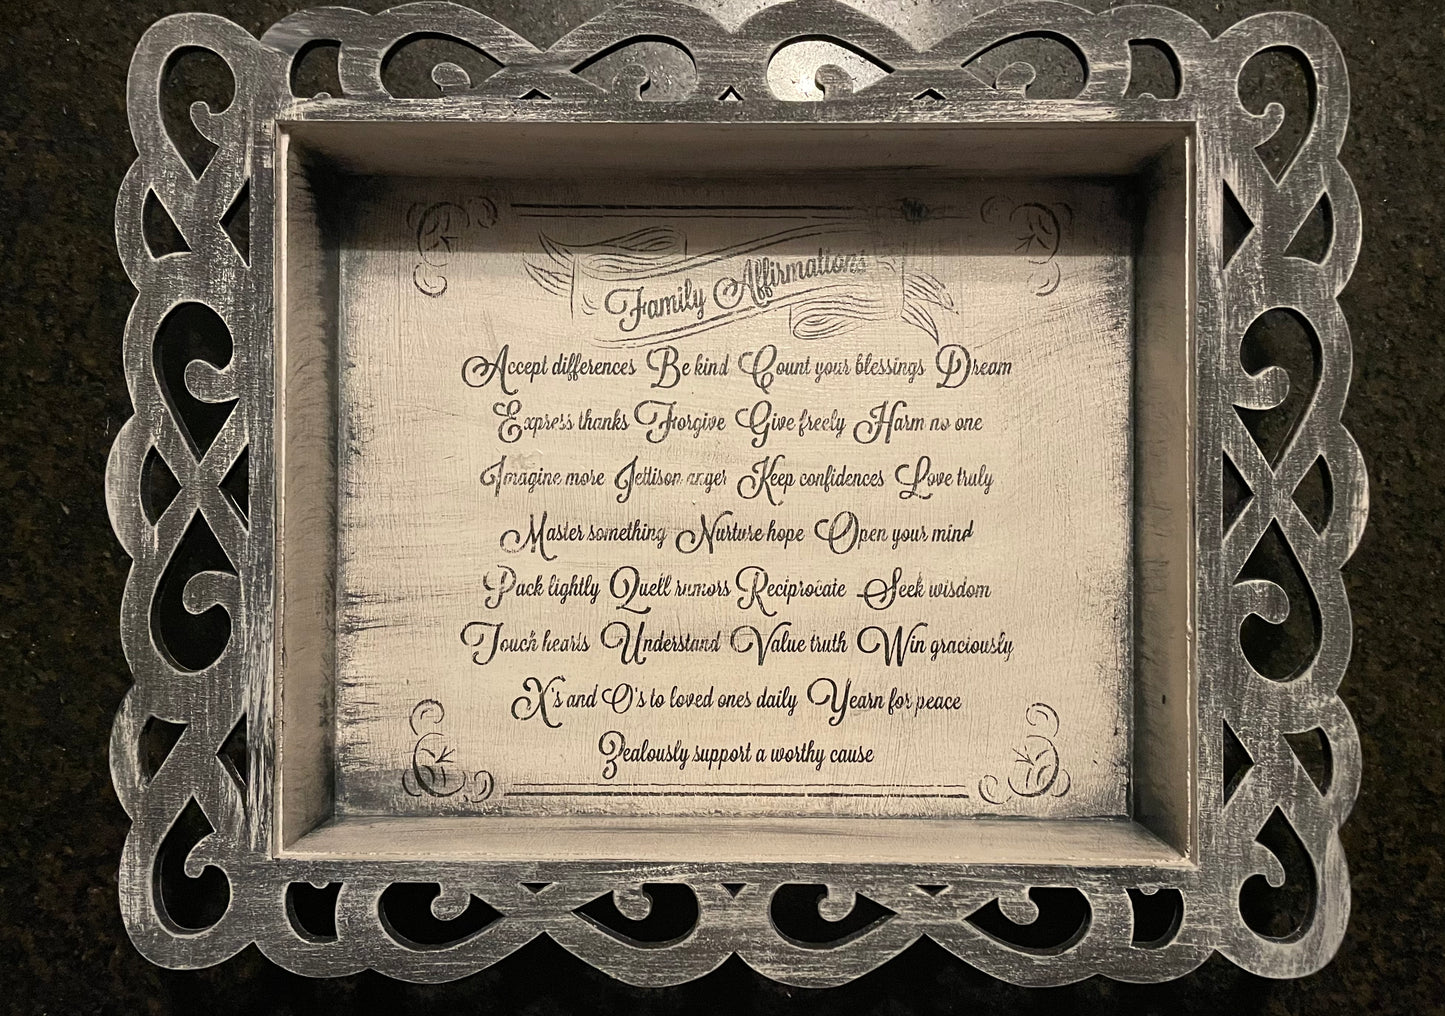 Family Affirmations
Accept differences Be kind Count your blessings Dream
Express thanks Forgive Give freely Harm no one
Imagine more Jettison anger Keep confidences Love truly
Master something Nurture hope Open your mind
Pack lightly Quell rumors Reciprocate Seek wisdom
Touch hearts Understand Value truth Win graciously
X's and O's to loved ones daily Yearn for peace
Zealously support a worthy cause